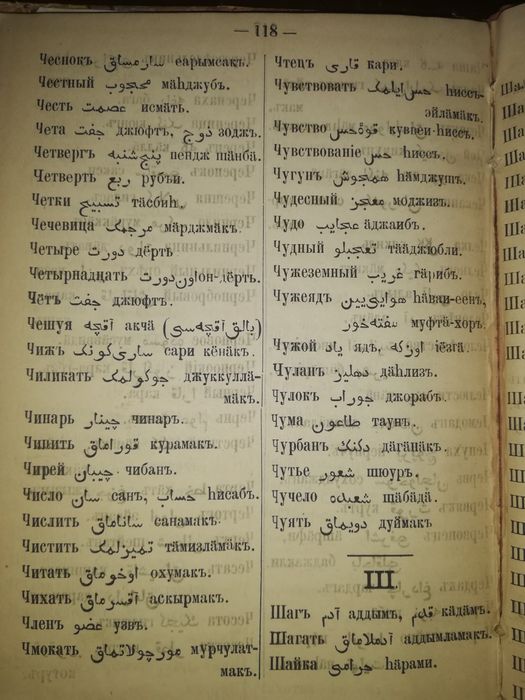 — 118 —
Чеснокъ سارمساق сарымсакъ.
Честный محجوب мäһджубъ.
Честь عصمت исмäтъ.
Чета جفت джюфтъ, زوج зоджъ.
Четвергъ پنچشنبه пендж шäнбä.
Четверть ربع рубъи.
Четки تسبيح тäсбиһ.
Чечевица مرجمك мäрджмäкъ.
Четыре دورت дёртъ
Четырнадцать اون دورت он-дёртъ.
Чётъ جفت джюфтъ.
Чешуя آقچه акчä (بالق آقچه سی)
Чижъ ساری كونك сари кёнäкъ.
Чиликать جوكولمك джуккуллä-
мäкъ.
Чинаръ چينار чинаръ.
Чинить قورامق курамакъ.
Чирей چيبان чибанъ.
Число سان санъ, حساب һисабъ.
Числить ساناماق санамакъ.
Чистить تميزلمك тäмизлäмäкъ.
Читать اوخوماق охумакъ.
Чихать آقسرماق аскырмакъ.
Членъ عضو узвъ.
Чмокать مورچولاتماق мурчулат-
макъ.
Чтецъ قاری кари.
Чувствовать حس ايلمك һиссъ-
эйлäмäкъ.
Чувство قوۀ حس куввеи-һиссъ.
Чувствованіе حس һиссъ.
Чугунъ همجوش һäмджушъ.
Чудесный معجز моджизъ.
Чудо عجايب äджаибъ.
Чудный تعجبلو тääджюбли.
Чужеземный غريب гäрибъ.
Чужеядъ هوايی يين һäваи-еенъ,
مفته خور муфтä-хоръ.
Чужой ياد ядъ, اوزكه іёзгä.
Чуланъ دهليز дäһлизъ.
Чулокъ جوراب джорабъ.
Чума طاعون таунъ.
Чурбанъ دكنك дäгäнäкъ.
Чутье شعور шюуръ.
Чучело شعبده шäбäдä.
Чуять دويماق дуймакъ
Ш.
Шагъ آدم аддымъ, قدم кäдäмъ.
Шагать آدملاماق аддымламакъ.
Шайка حرامی һäрами.